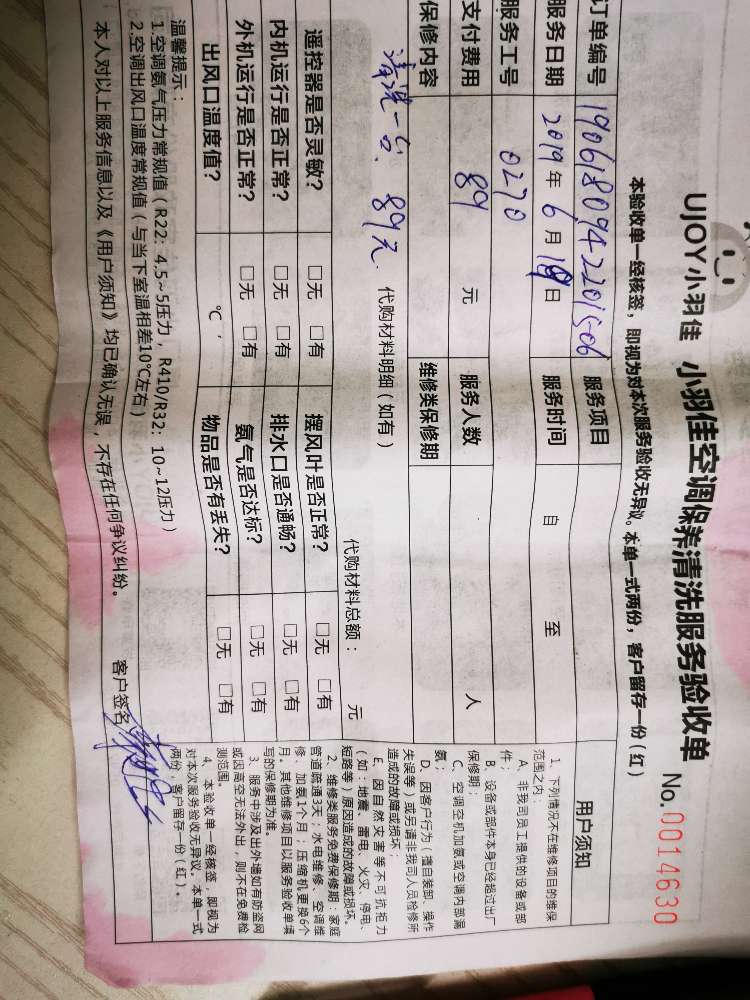 UJOY小羽佳 小羽佳空调保养清洗服务验收单 No.0014630
本验收单一经核签，即视为对本次服务验收无异议。本单一式两份，客户留存一份(红)
订单编号 1906180942201506 服务项目
服务日期 2019年6月19日 服务时间 自 至
服务工号 0270
支付费用 89 元 服务人数 人
保修内容 维修类保修期
清洗一台 89元. 代购材料明细（如有）
代购材料总额： 元
遥控器是否灵敏？ □无 □有 摆风叶是否正常？ □无 □有
内机运行是否正常？ □无 □有 排水口是否通畅？ □无 □有
外机运行是否正常？ □无 □有 氨气是否达标？ □无 □有
出风口温度值？ ℃ 物品是否有丢失？ □无 □有
温馨提示：
1.空调氨气压力常规值（R22：4.5~5压力，R410/R32：10~12压力）
2.空调出风口温度常规值（与当下室温相差10℃左右）
本人对以上服务信息以及《用户须知》均已确认无误，不存在任何争议纠纷。 客户签名
用户须知
1、下列情况不在维修项目的维保
范围之内：
A、非我司员工提供的设备或部
件；
B、设备或部件本身已经超过出厂
保修期；
C、空调空机加氨或空调内部漏
氨；
D、因客户行为（擅自装卸、操作
失误等）或另请非我司人员检修所
造成的故障或损坏；
E、因自然灾害等不可抗拒力
（如：地震、雷电、火灾、停电、
短路等）原因造成的故障或损坏。
2、维修类服务免费保修期：家庭
管道疏通3天；水电维修、空调维
修、加氨1个月；压缩机更换6个
月。其他维修项目以服务验收单填
写的保修期为准。
3、服务中涉及出外墙如有防盗网
或因高空无法外出，则不在免费检
测范围。
4、本验收单一经核签，即视为
对本次服务验收无异议。本单一式
两份，客户留存一份(红)。